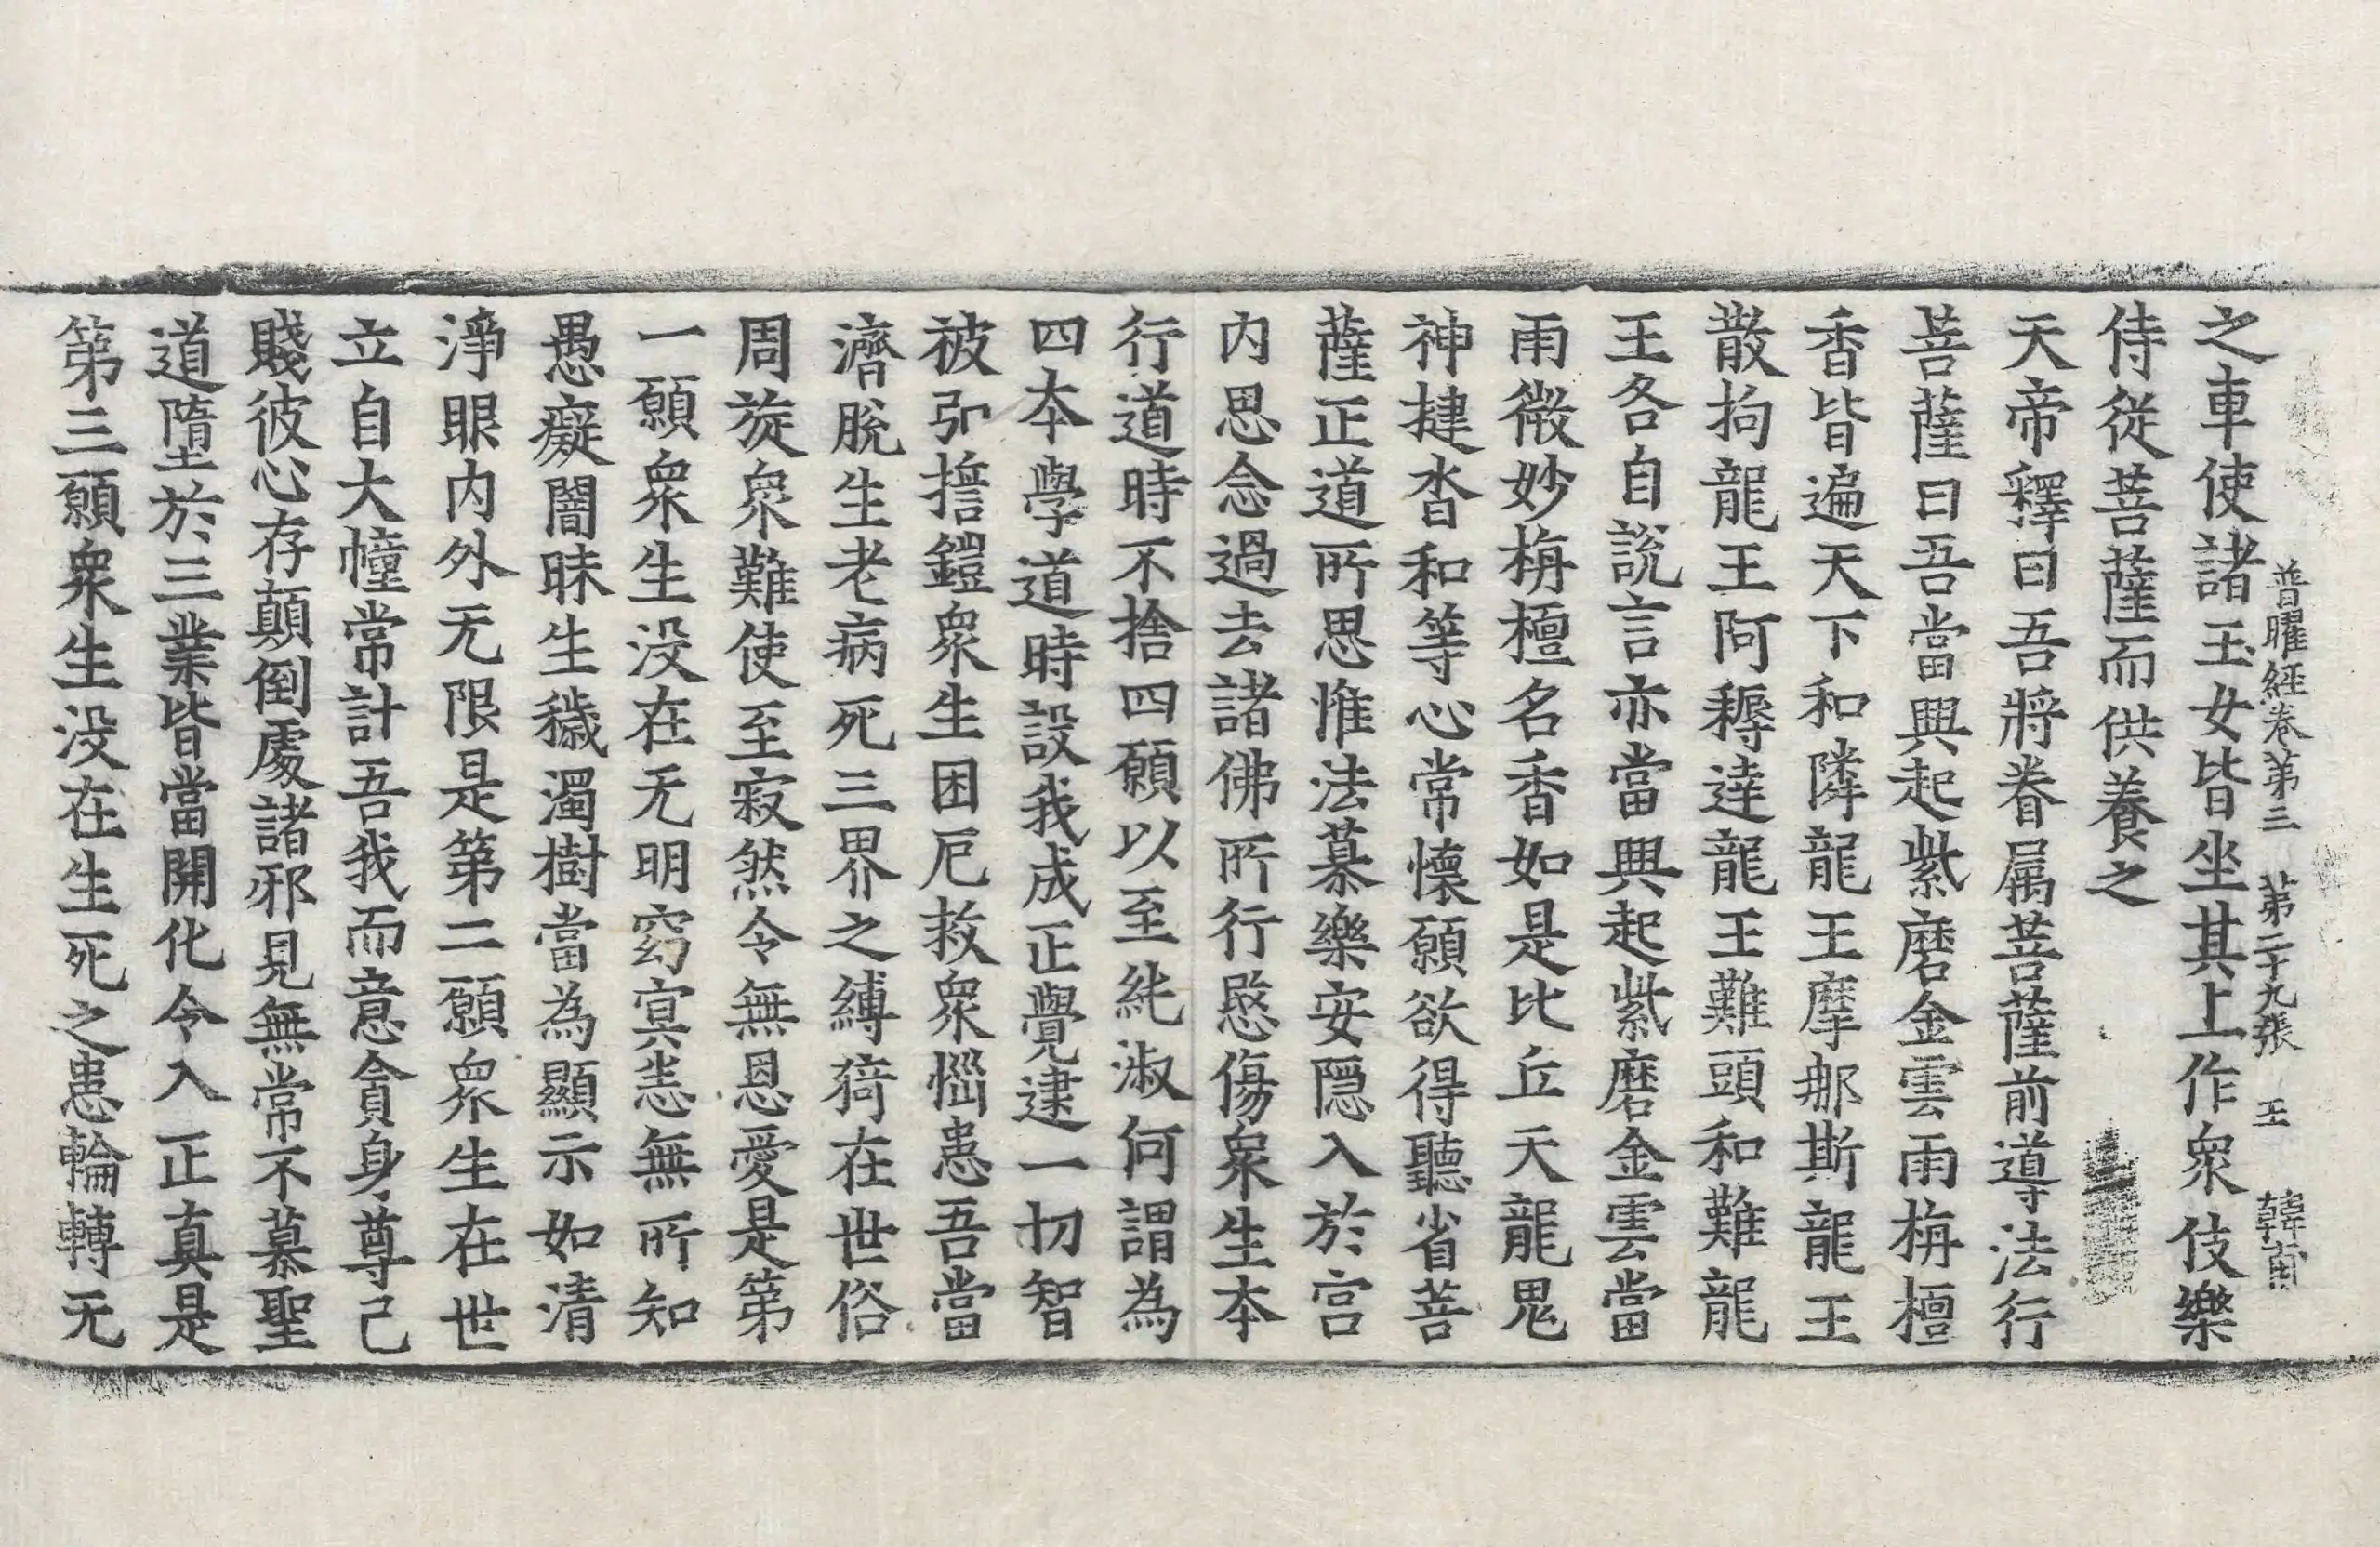 普曜經卷第三 第二十九張 王 韓甫
之車使諸玉女皆坐其上作衆伎樂
侍從菩薩而供養之
天帝釋曰吾將眷属菩薩前導法行
菩薩曰吾當興起紫磨金雲雨栴檀
香皆遍天下和隣龍王摩那斯龍王
散拘龍王阿耨達龍王難頭和難龍
王各自說言亦當興起紫磨金雲當
雨微妙栴檀名香如是比丘天龍鬼
神揵沓和等心常懷願欲得聽省菩
薩正道所思惟法慕樂安隱入於宫
内思念過去諸佛所行愍傷衆生本
行道時不捨四願以至純淑何謂為
四本學道時設我成正覺逮一切智
被弘誓鎧衆生困厄救衆惱患吾當
濟脫生老病死三界之縛猗在世俗
周旋衆難使至寂然令無恩愛是第
一願衆生没在无明窈冥恙無所知
愚癡闇昧生穢濁樹當為顯示如清
淨眼内外无限是第二願衆生在世
立自大幢常計吾我而意貪身尊己
賤彼心存顛倒處諸邪見無常不慕聖
道墮於三業皆當開化令入正真是
第三願衆生没在生死之患輪轉无